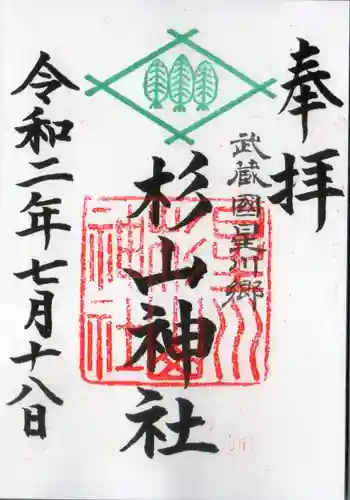 奉拝
武蔵國星川郷
杉山神社
令和二年七月十八日